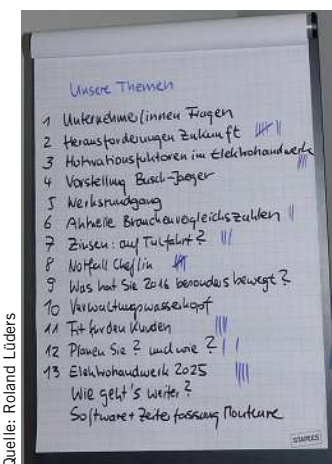 Unsere Themen
1 Unternehmer/innen Fragen
2 Herausforderungen Zukunft
3 Motivationsfaktoren im Elektrohandwerk
4 Vorstellung Busch-Jaeger
5 Werksrundgang
6 Aktuelle Branchenvergleichszahlen
7 Zinsen: auf Talfahrt?
8 Notfall Chef/in
9 Was hat Sie 2016 besonders bewegt?
10 Verwaltungswasserkopf
11 Fit für den Kunden
12 Planen Sie? und wie?
13 Elektrohandwerk 2025
Wie geht's weiter?
Software + Zeiterfassung Monteure
STAPLES
Quelle: Roland Lüders